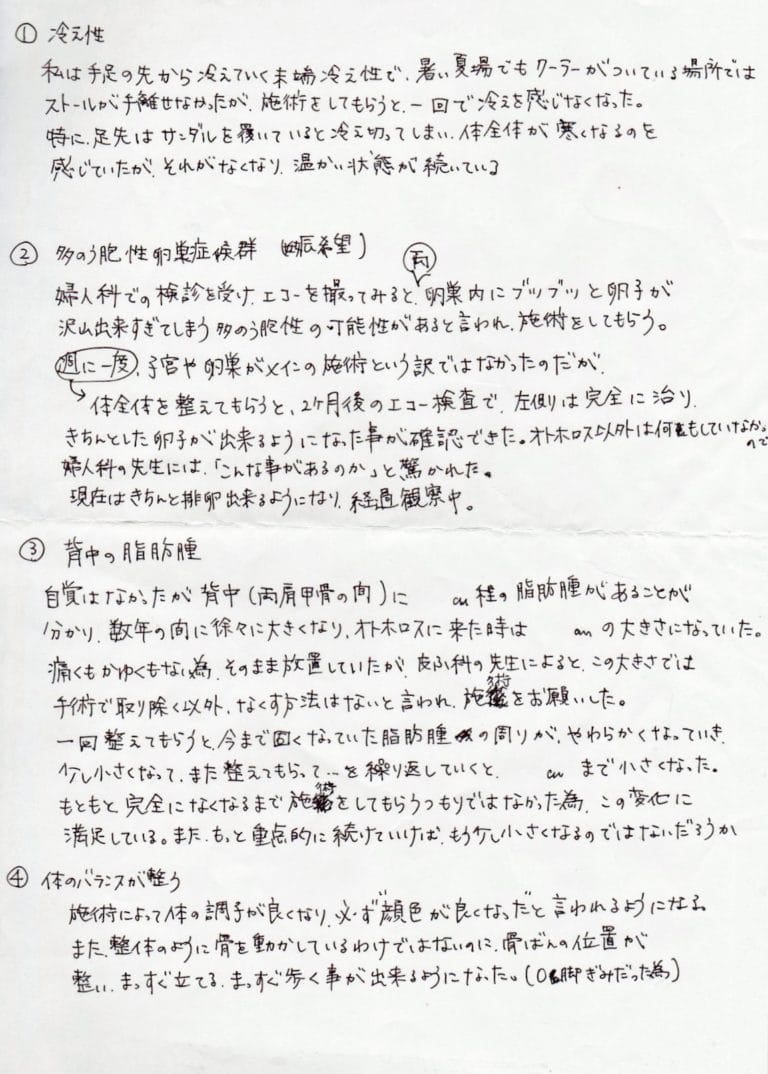 ① 冷え性
私は手足の先から冷えていく末端冷え性で、暑い夏場でもクーラーがついている場所では
ストールが手離せなかったが、施術をしてもらうと、一回で冷えを感じなくなった。
特に、足先はサンダルを履いていると冷え切ってしまい、体全体が寒くなるのを
感じていたが、それがなくなり、温かい状態が続いている
② 多のう胞性卵巣症候群 (妊娠希望)
両
婦人科での検診を受け、エコーを撮ってみると、卵巣内にブツブツと卵子が
沢山出来すぎてしまう多のう胞性の可能性があると言われ、施術をしてもらう。
週に一度、子宮や卵巣がメインの施術という訳ではなかったのだが、
体全体を整えてもらうと、2ヶ月後のエコー検査で、左側は完全に治り、
きちんとした卵子が出来るようになった事が確認できた。オトホロス以外は何もしていなかったので
婦人科の先生には、「こんな事があるのか」と驚かれた。
現在はきちんと排卵出来るようになり、経過観察中。
③ 背中の脂肪腫
自覚はなかったが背中(両肩甲骨の間)に cm程の脂肪腫があることが
分かり、数年の間に徐々に大きくなり、オトホロスに来た時は cmの大きさになっていた。
痛くもかゆくもない為、そのまま放置していたが、皮ふ科の先生によると、この大きさでは
手術で取り除く以外、なくす方法はないと言われ、施術をお願いした。
一回整えてもらうと、今まで固くなっていた脂肪腫の周りが、やわらかくなっていき、
少し小さくなって、また整えてもらって…を繰り返していくと、 cmまで小さくなった。
もともと完全になくなるまで施術をしてもらうつもりではなかった為、この変化に
満足している。また、もっと重点的に続けていけば、もう少し小さくなるのではないだろうか
④ 体のバランスが整う
施術によって体の調子が良くなり、必ず"顔色が良くなっだと言われるようになる
また、整体のように骨を動かしているわけではないのに、骨ばんの位置が
整い、まっすぐ立てる、まっすぐ歩く事が出来るようになった。(O脚ぎみだった為)